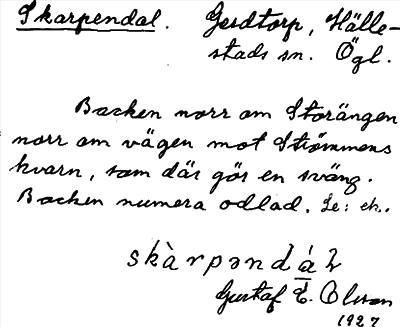 Skarpendal. Gerdtorp, Hälle-
stads sn. Ögl.
Backen norr om Storängen
norr om vägen mot Strömmens
kvarn, som där gör en sväng.
Backen numera odlad. Se: ek.
skàrpəndáł
Gustaf E. Olsson
1927